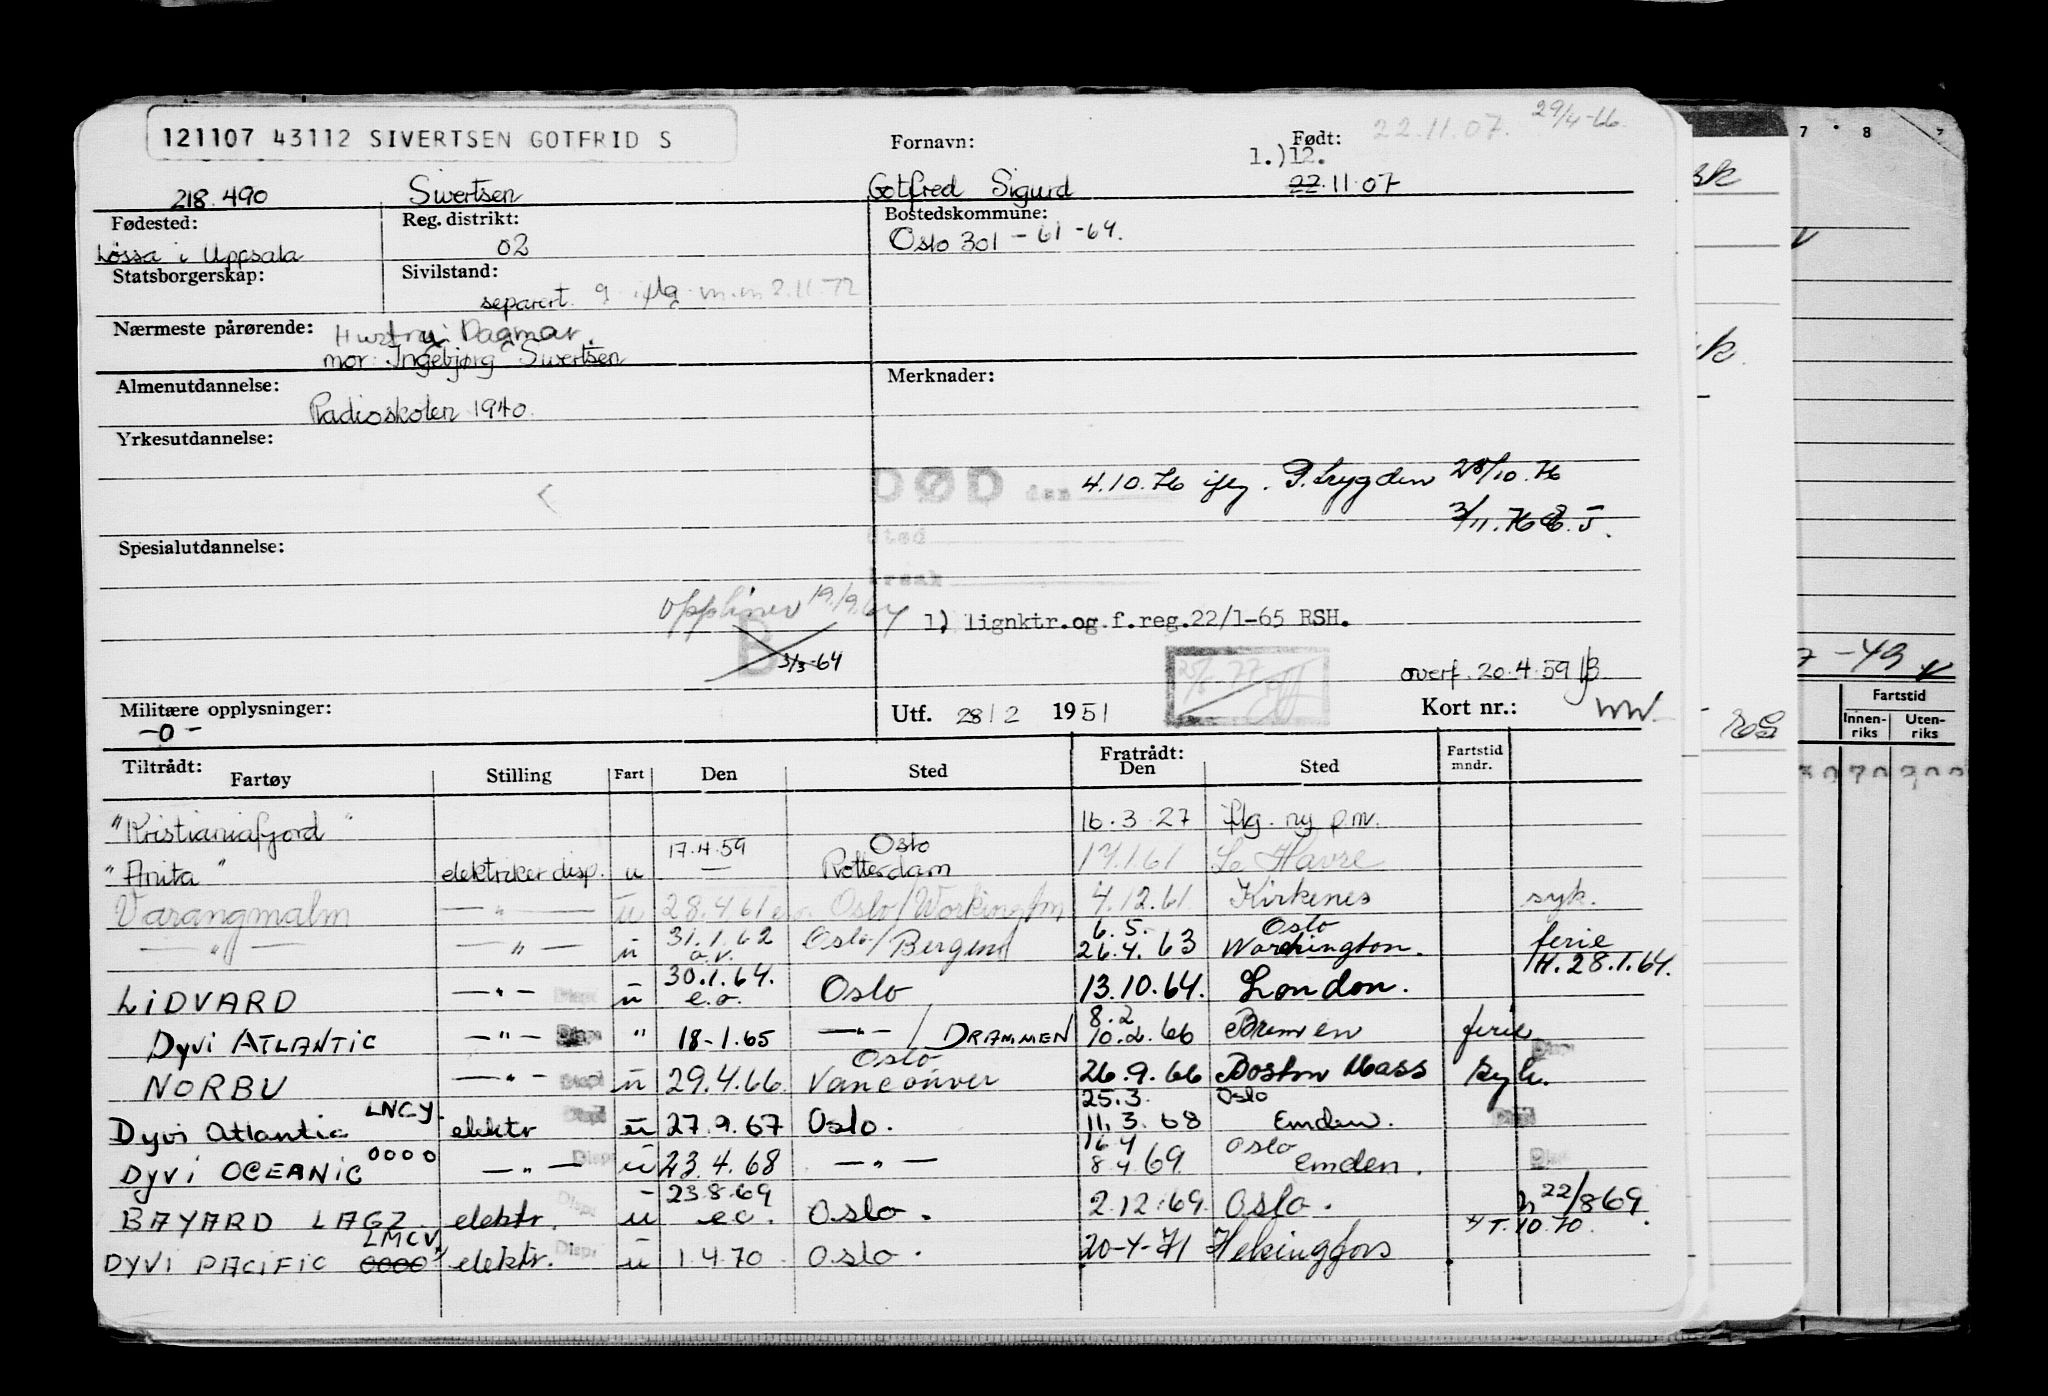 121107 43112 SIVERTSEN GOTFRID S
Fornavn:
Født: 22.11.07. 29/4-66.
1.)12.
218.490 Sivertsen Gotfred Sigurd 22.11.07
Fødested: Reg. distrikt: Bostedskommune:
Løssa i Uppsala 02 Oslo 301 - 61 - 64.
Statsborgerskap: Sivilstand:
separert. g. iflg. m.m 2.11.72
Nærmeste pårørende: Hustru: Dagmar.
mor: Ingebjørg Sivertsen
Almenutdannelse: Merknader:
Radioskolen 1940.
Yrkesutdannelse:
DØD den 4.10.76 iflg. P.trygden 28/10.76
3/11.76
sted
årsak
Spesialutdannelse:
19/9.64
1) lignktr.og f.reg.22/1-65 RSH.
B 3/3-64
overf. 20.4.59
Militære opplysninger: Utf. 28/2 1951 Kort nr.:
-0-
Tiltrådt: Fratrådt:
Fartøy Stilling Fart Den Sted Den Sted Fartstid mndr.
"Kristianiafjord" 16.3.27 iflg. ny p.m.
17.4.59 Oslo
"Anita" elektriker disp. u — Rotterdam 17.1.61 Le Havre
Varangmalm — " — u 28.4.61 Oslo/Workington 4.12.61. Kirkenes syk.
6.5. Oslo
— " — — " — u 31.1.62 a.v. Oslo/Bergen 26.4.63 Workington. ferie
H. 28.1.64.
LIDVARD — " — Disp u 30.1.64. e.o. Oslo 13.10.64. London.
8.2
Dyvi ATLANTIC — " — Disp " 18-1.65 — " — / DRAMMEN 10.2.66 Bremen ferie
Oslo
NORBU — " — Disp u 29.4.66. Vancouver 26.9.66 Boston Mass syk.
LNCY. 25.3. Oslo
Dyvi Atlantic elektr Disp u 27.9.67 Oslo. 11.3.68 Emden.
0000 16.4 Oslo
Dyvi OCEANIC — " — Disp u 23.4.68 — " — 8.4.69. Emden.
23.8.69
BAYARD LAGZ. elektr. Disp u e.o. Oslo. 2.12.69. Oslo. 22/869.
LMCV H T.10.70.
DYVI PACIFIC 0000 elektr. Disp u 1.4.70 Oslo. 20-4-71 Helsingfors
7 8
7-49
Fartstid
Innenriks Utenriks